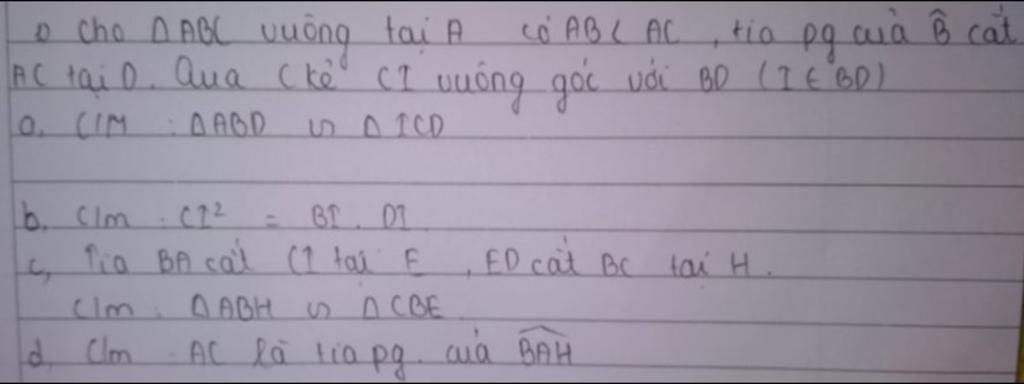 Cho ΔABC vuông tại A có AB < AC, tia pg của B̂ cắt
AC tại D. Qua C kẻ CI vuông góc với BD (I ∈ BD)
a, C/M : ΔABD ∽ ΔICD
b, C/m : CI² = BI . DI
c, Tia BA cắt CI tại E, ED cắt BC tại H.
C/m : ΔABH ∽ ΔCBE
d, C/m : AC là tia pg. của \widehat{BAH}